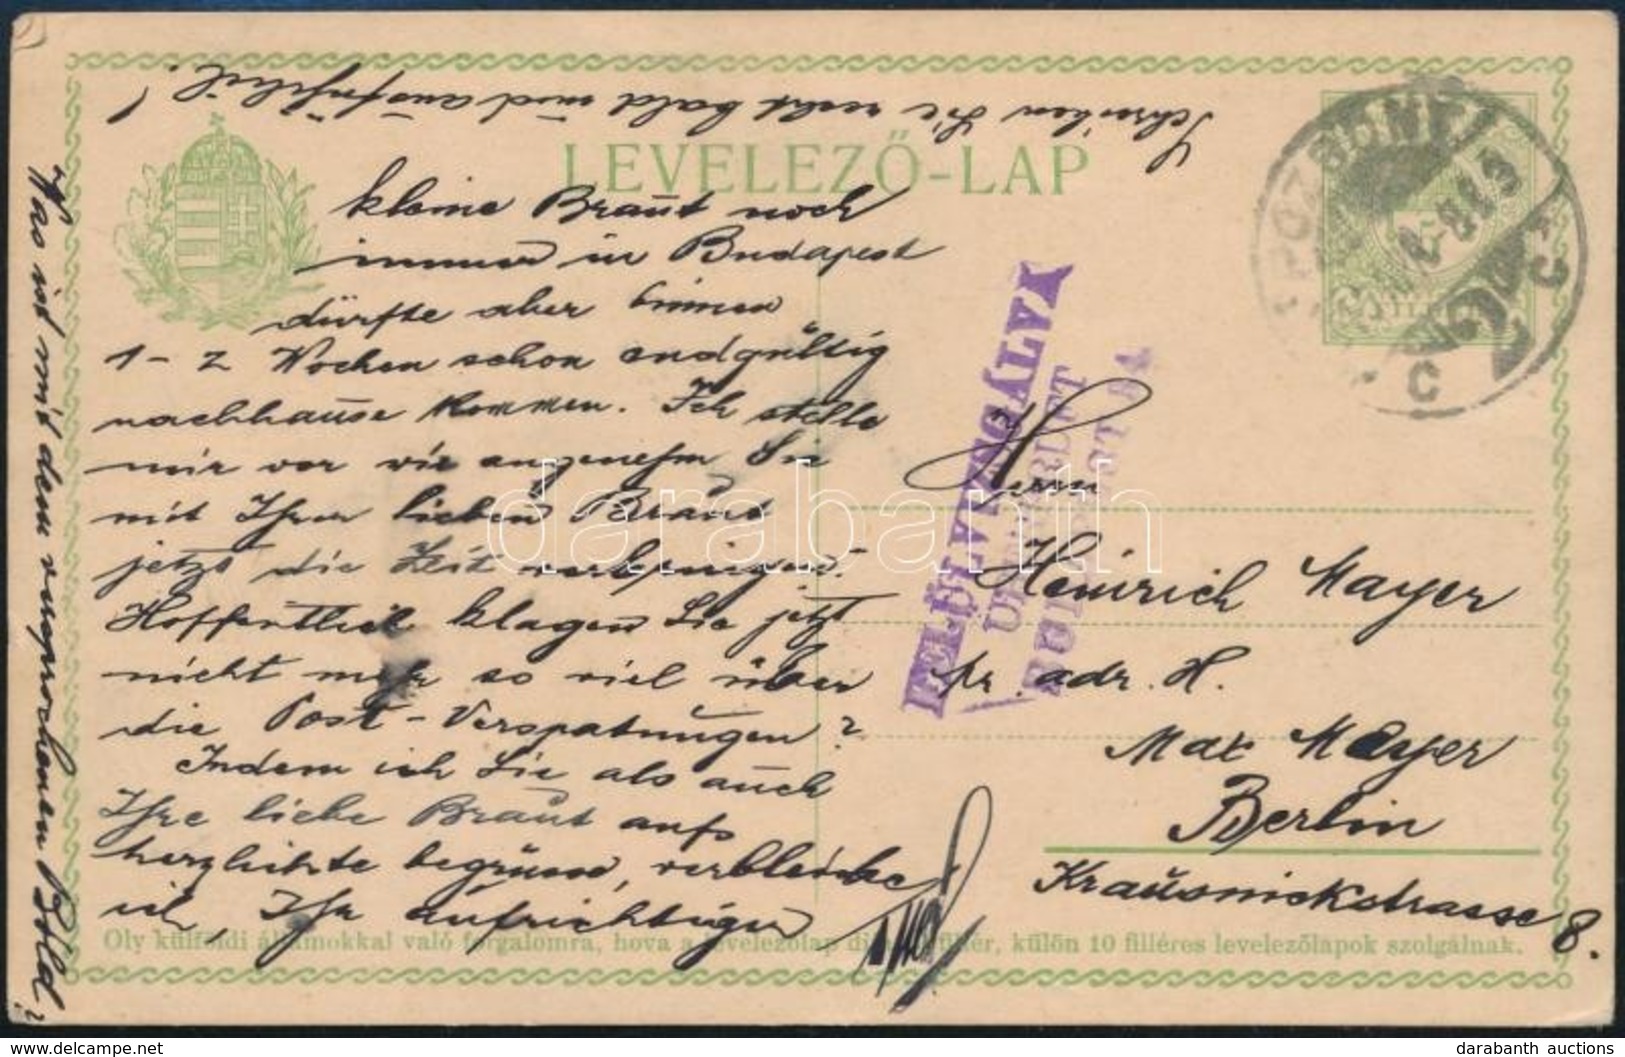 Schreiben Sie recht bald und ausführlich!
LEVELEZŐ-LAP
kleine Braut noch
immer in Budapest
dürfte aber binnen
1-2 Wochen schon endgültig
nachhause kommen. Ich stelle
mir vor wie angenehm Sie
mit Ihrer lieben Braut
jetzt die Zeit verbringen.
Hoffentlich klagen Sie jetzt
nicht mehr so viel über
die Post-Verspatungen?
Indem ich Sie als auch
Ihre liebe Braut aufs
herzlichste begrüsse, verbleibe
ich, Ihr aufrichtiger
Was ist mit dem versprochenen Bild?
POZSONY
C
FELÜLVIZSGÁLVA
Herrn
Heinrich Mayer
pr. adr. H.
Max Mayer
Berlin
Kraüsnickstrasse 8.
Oly külföldi államokkal való forgalomra, hova a levelezőlap díja 10 fillér, külön 10 filléres levelezőlapok szolgálnak.
darabanth
delcampe.net
darabanth auctions